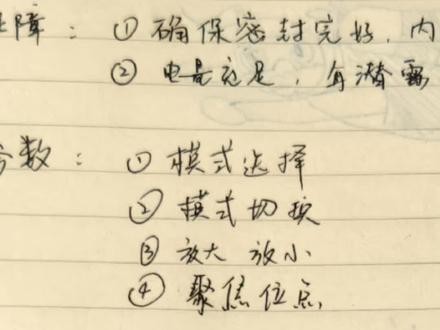 障：① 确保密封完好，内
② 电量充足，有潜
参数：① 模式选择
② 模式切换
③ 放大 放小
④ 聚焦位点